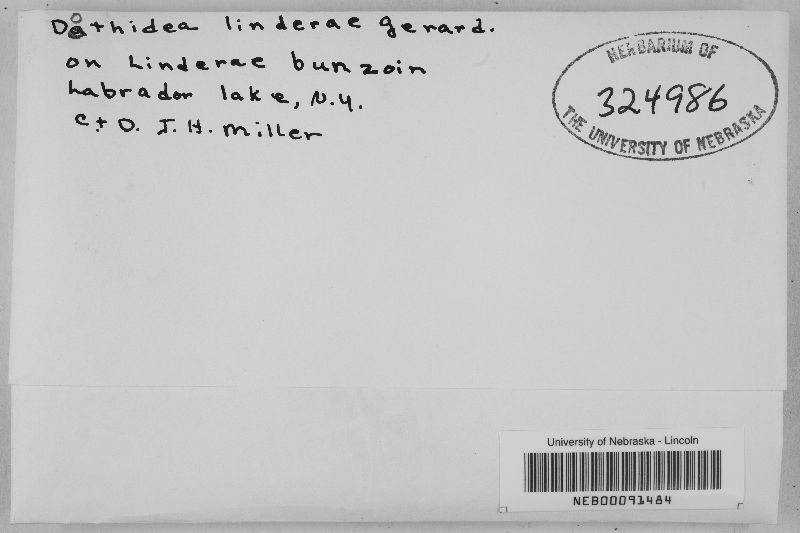 Dothidea linderae Gerard.
on Linderae bunzoin
Labrador lake, N.Y.
C + D. J. H. Miller
HERBARIUM OF
324986
THE UNIVERSITY OF NEBRASKA
University of Nebraska - Lincoln
NEB00091484